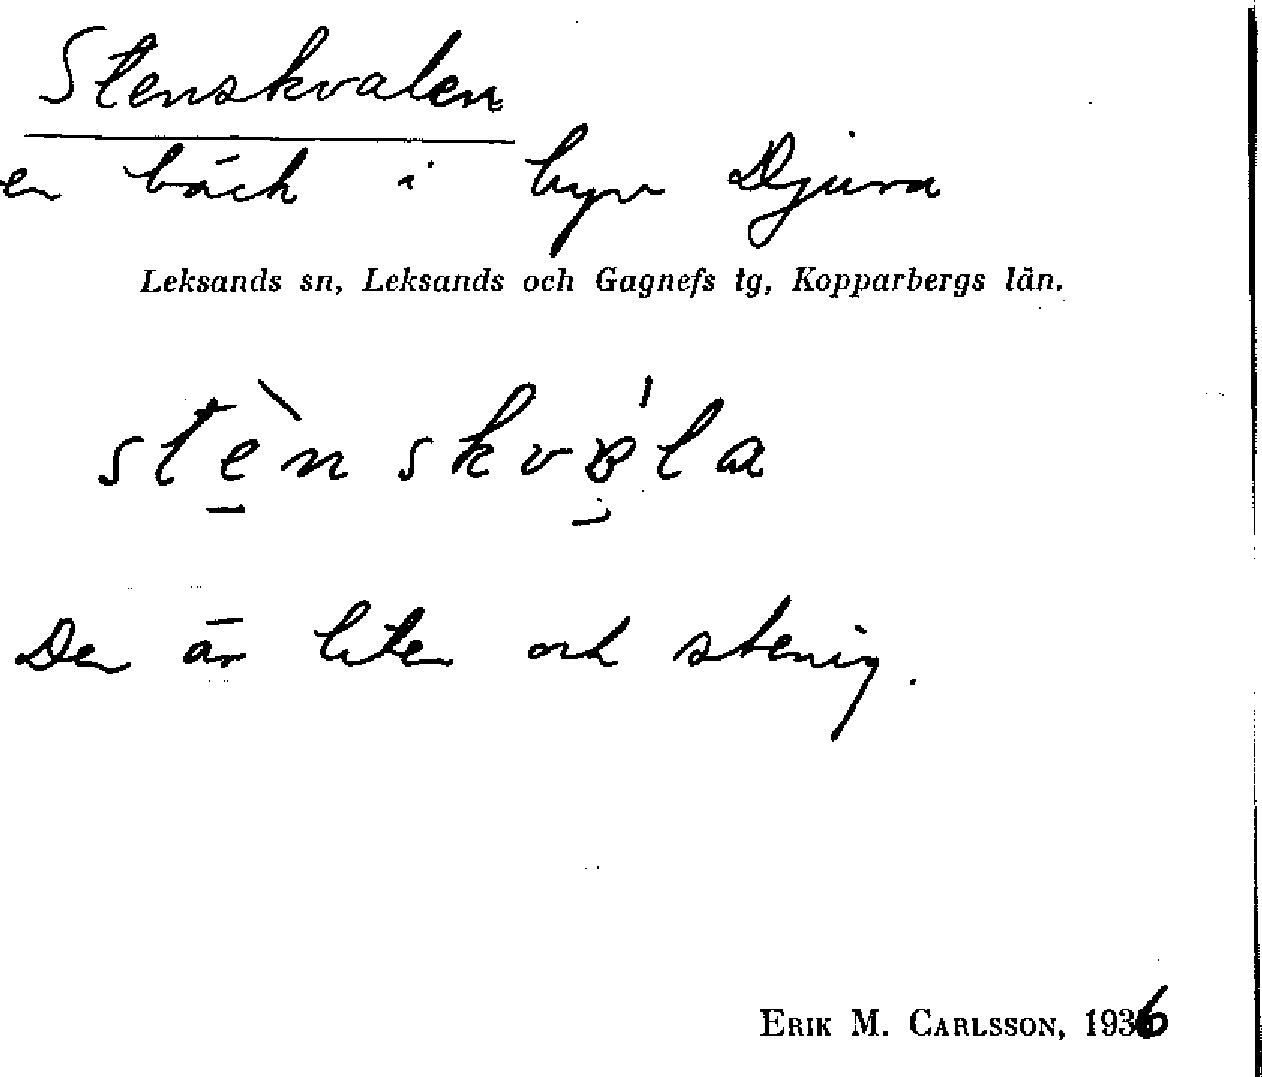 Stenskvalen
en bäck i byn Djura
Leksands sn, Leksands och Gagnefs tg, Kopparbergs län.
Den är liten och stenig.
ERIK M. CARLSSON, 1936